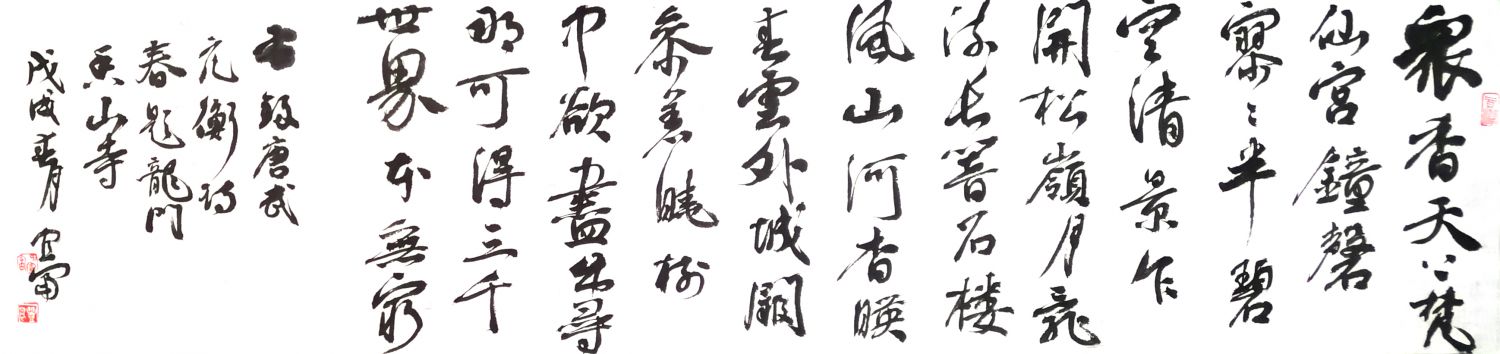 衆香天上梵
仙宮鐘磬
寥〻半碧
空清景乍
開松嶺月亂
流長響石楼
風山河杳暎
春雲外城闕
參差曉樹
中欲盡出尋
那可得三千
世界本無窮
右錄唐武
元衡詩
春題龍門
香山寺
戊戌春月